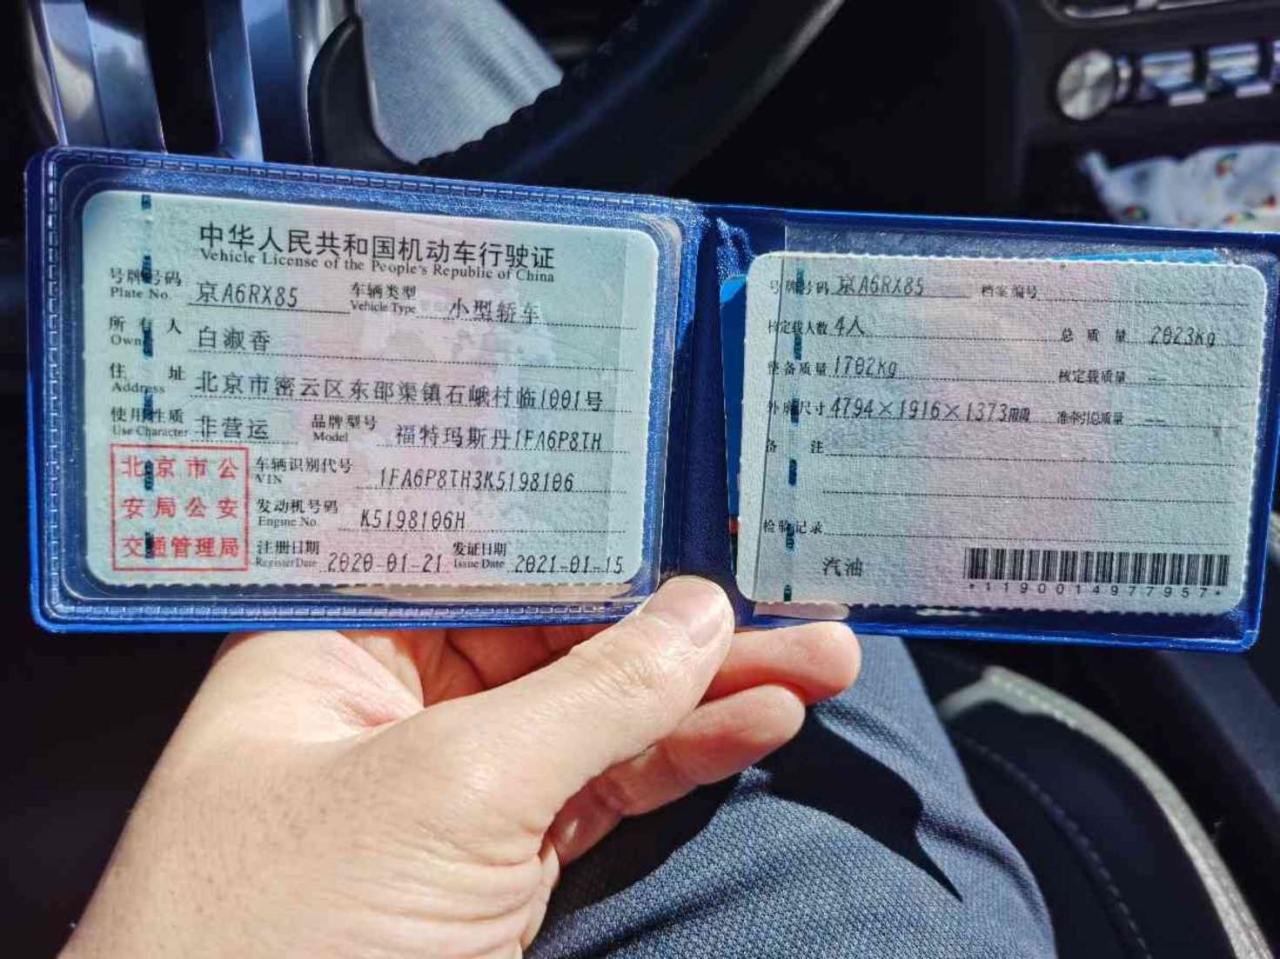 中华人民共和国机动车行驶证
Vehicle License of the People's Republic of China
号牌号码 京A6RX85 车辆类型 小型轿车
Plate No. Vehicle Type
所有人 白淑香
Owner
住址 北京市密云区东邵渠镇石峨村临1001号
Address
使用性质 非营运 品牌型号 福特玛斯丹1FA6P8TH
Use Character Model
北京市公
安局公安
交通管理局
车辆识别代号 1FA6P8TH3K5198106
VIN
发动机号码 K5198106H
Engine No.
注册日期 2020-01-21 发证日期 2021-01-15
Register Date Issue Date
号牌号码 京A6RX85 档案编号
核定载人数 4人 总质量 2023kg
整备质量 1702kg 核定载质量 --
外廓尺寸 4794×1916×1373mm 准牵引总质量 --
备注
检验记录
汽油
*1190014977957*